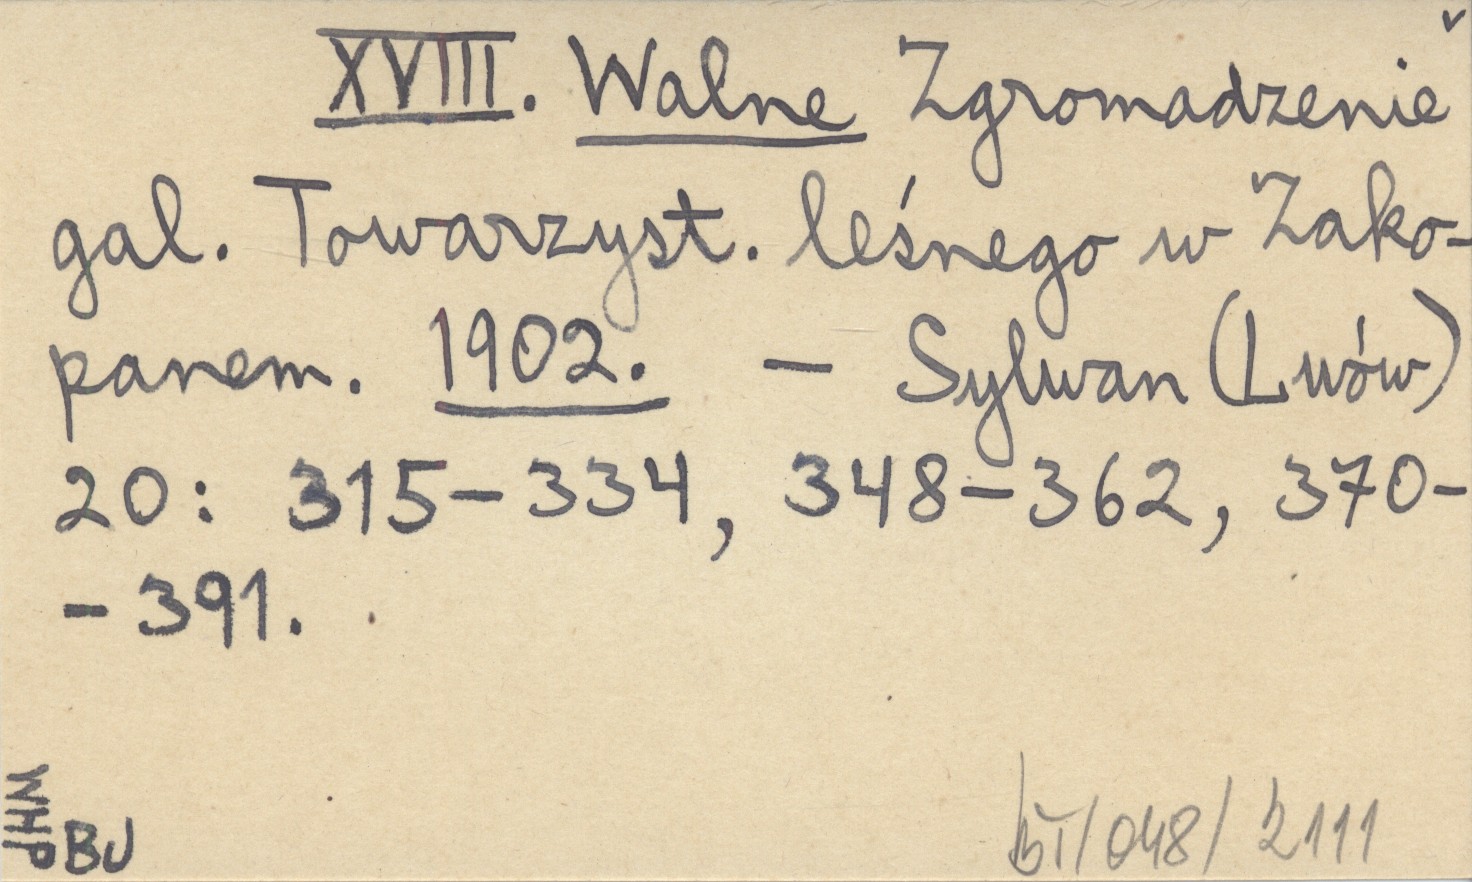 XVIII. Walne Zgromadzenie
gal. Towarzyst. leśnego w Zako-
panem. 1902. — Sylwan (Lwów)
20: 315-334, 348-362, 370-
-391.
WHP
BJ
BT/048/2111